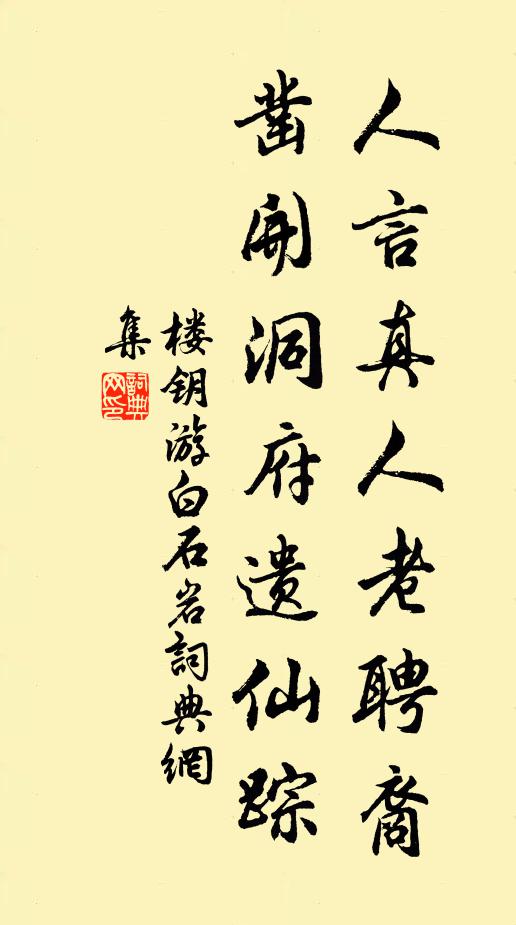 人言真人老聘裔
凿开洞府遗仙踪
楼钥游白石岩詞典網
集
詞典网印